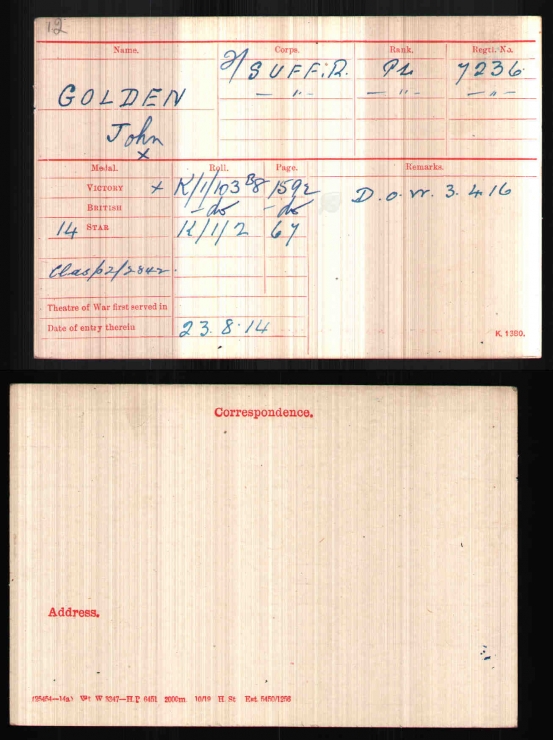 12
Name. Corps. Rank. Regtl. No.
2/ SUFF: R. Pte 7236
GOLDEN — " — — " — — " —
John
x
Medal. Roll. Page. Remarks.
VICTORY x K/1/103 B8 1592 D. o. W. 3.4.16
BRITISH — do — do
14 STAR K/1/2 67
Clasp 2/2842.
Theatre of War first served in
Date of entry therein 23.8.14
K. 1380.
Correspondence.
Address.
(35454—14a) Wt W 3347—H.P 6451 2000m 10/19 H. St Est 5450/1256